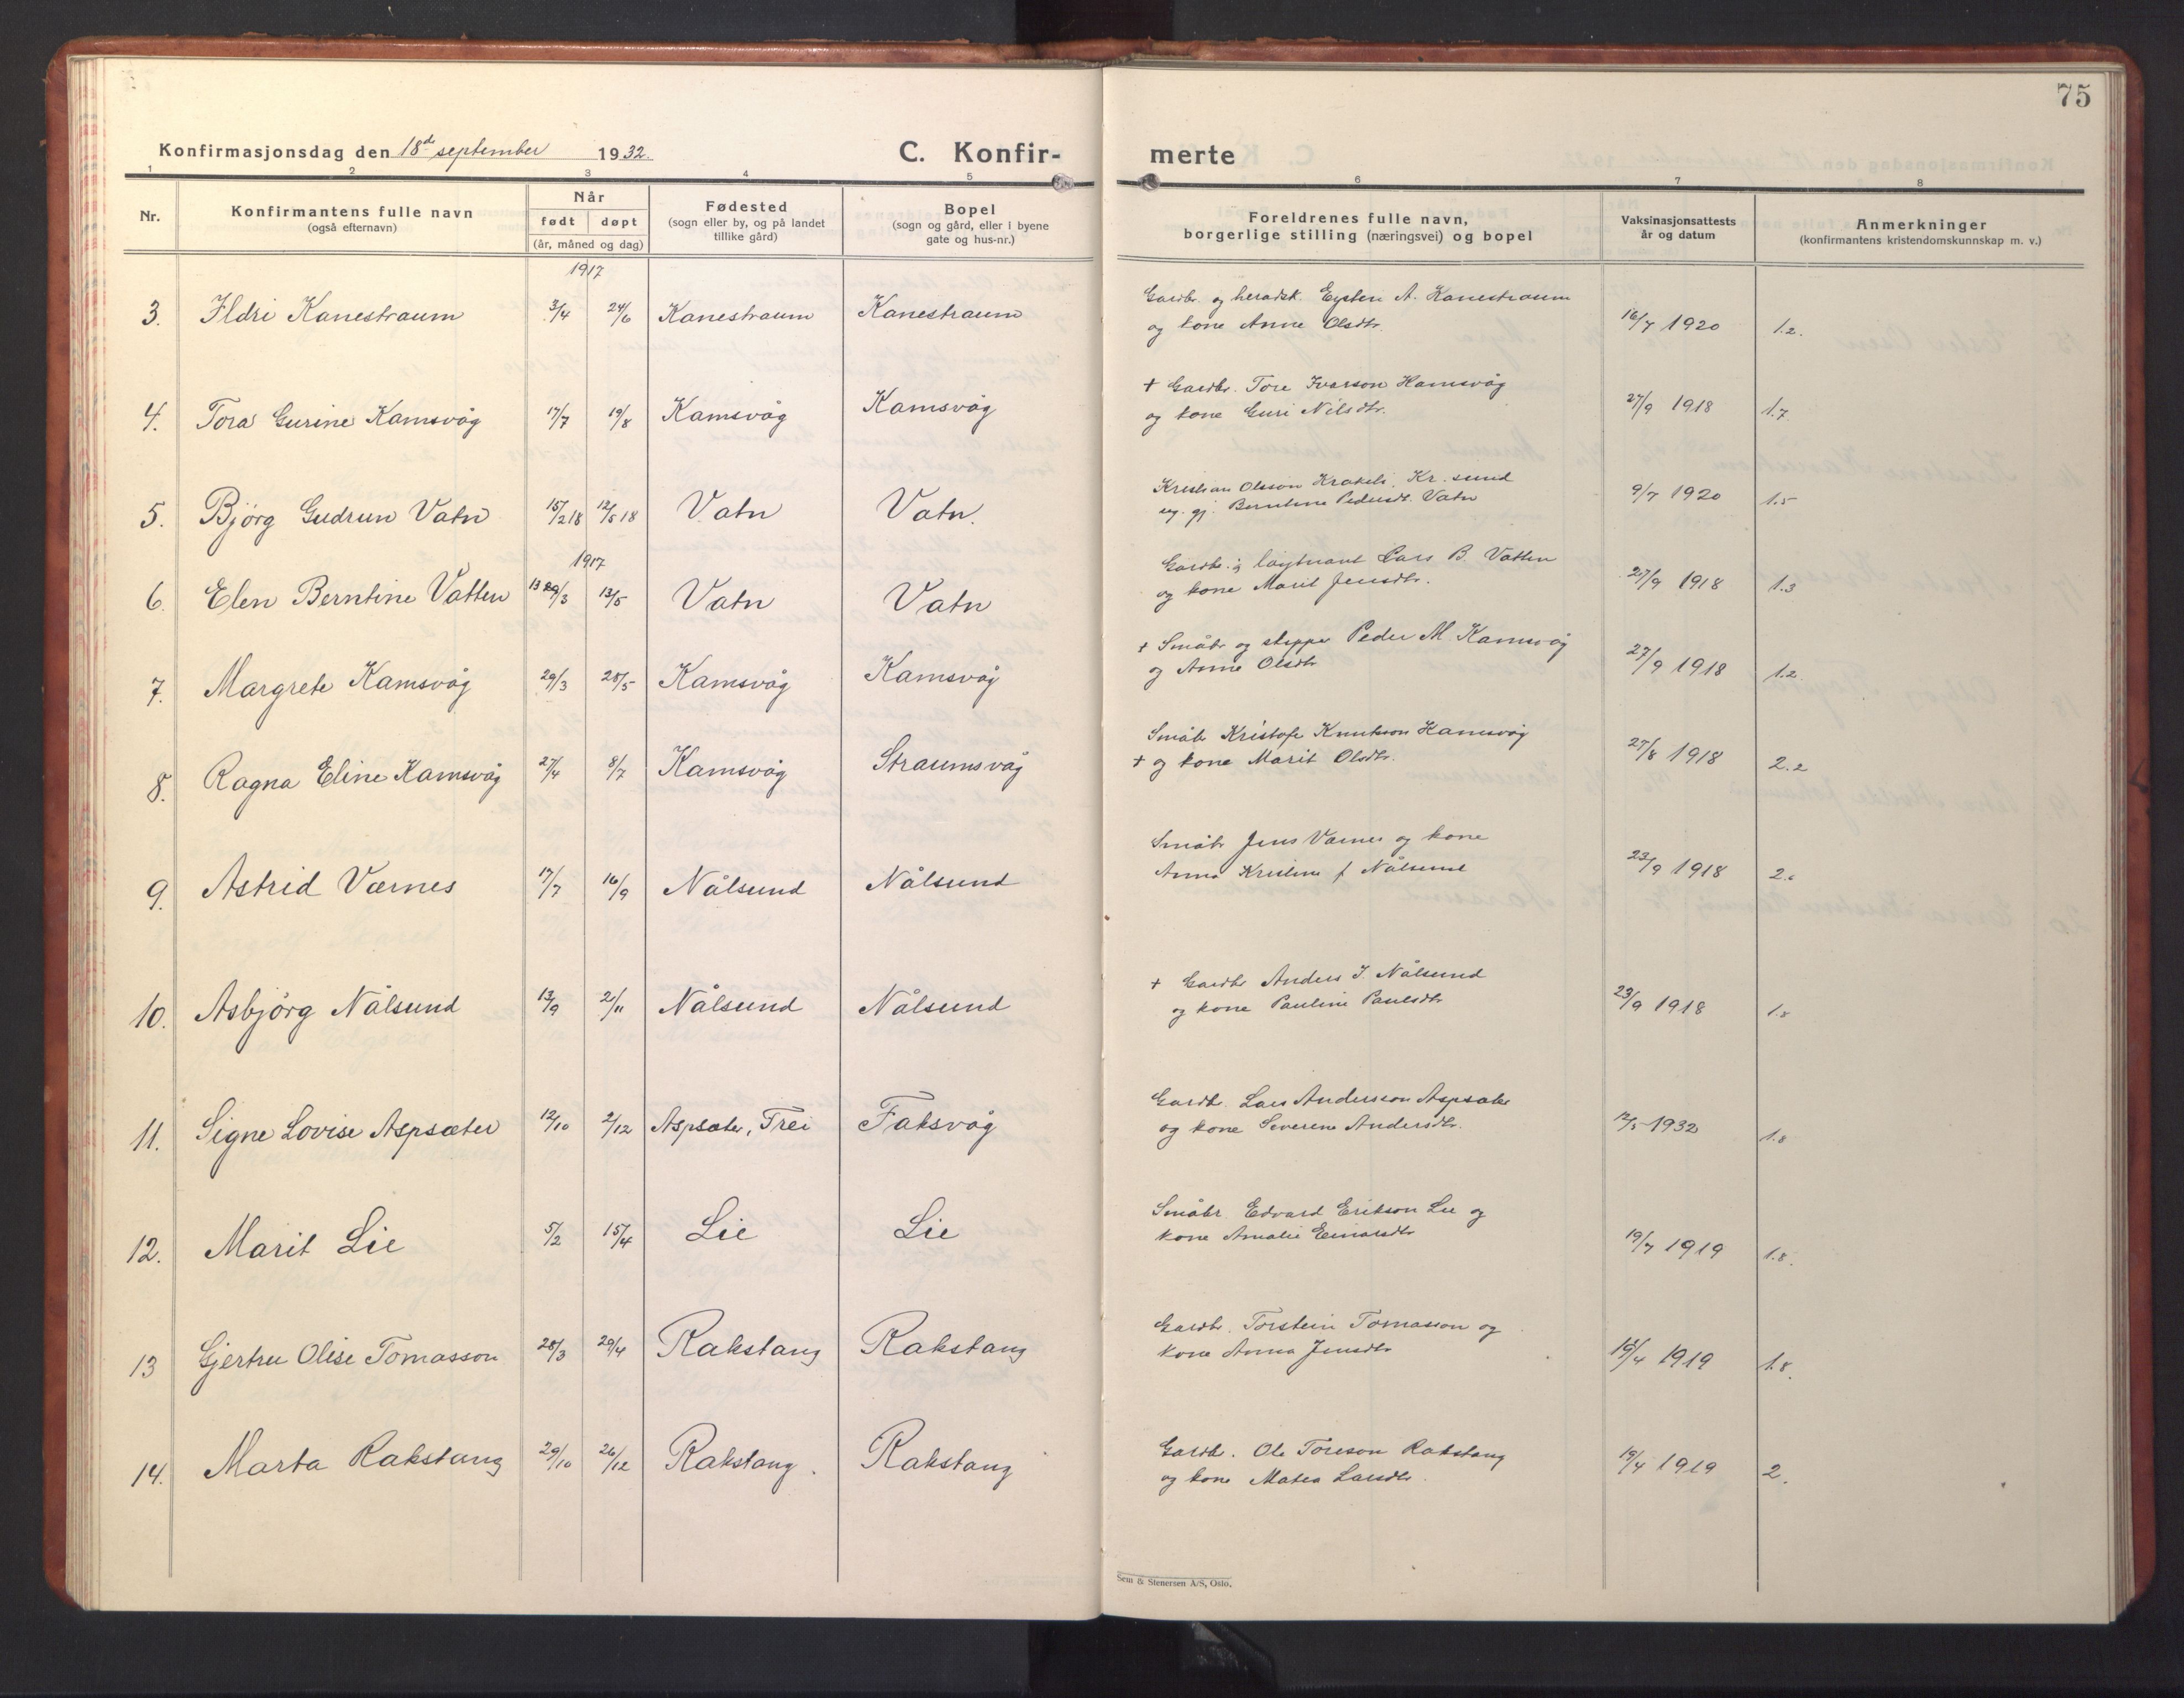 75
Konfirmasjonsdag den 18de september 1932.
C. Konfir-
merte
1 2 3 4 5 6 7 8
Nr.
Konfirmantens fulle navn
(også efternavn)
Når
født døpt
(år, måned og dag)
Fødested
(sogn eller by, og på landet
tillike gård)
Bopel
(sogn og gård, eller i byene
gate og hus-nr.)
Foreldrenes fulle navn,
borgerlige stilling (næringsvei) og bopel
Vaksinasjonsattests
år og datum
Anmerkninger
(konfirmantens kristendomskunnskap m. v.)
1917
3. Ildri Kanestraum 3/4 24/6 Kanestraum Kanestraum
Gardbr. og heradsk. Eystein A. Kanestraum
og kone Anne Olsdtr. 16/7 1920 1.2.
4. Tora Gurine Kamsvåg 17/7 19/8 Kamsvåg Kamsvåg
+ Gardbr. Tore Ivarson Kamsvåg
og kone Guri Nilsdtr. 27/9 1918 1.7
5. Bjørg Gudrun Vatn 15/2 18 12/5 18 Vatn Vatn.
Kristian Olsson Krakeli, Kr. sund
ug. gj. Berntine Pedersdt. Vatn 9/7 1920 1.5
1917
6. Elen Berntine Vatten 29/3 13/5 Vatn Vatn
Gardbr. og løytnant Lars B. Vatten
og kone Marit Jensdtr. 27/9 1918 1.3
7. Margrete Kamsvåg 29/3 28/5 Kamsvåg Kamsvåg
+ Småbr og skipper Peder M. Kamsvåg
og Anne Olsdtr 27/9 1918 1.2
8. Ragna Eline Kamsvåg 27/4 8/7 Kamsvåg Straumsvåg
Småbr Kristofer Knutsson Kamsvåg
+ og kone Marit Olsdtr. 27/8 1918 2.2
9. Astrid Værnes 17/7 16/9 Nålsund Nålsund
Småbr Jens Værnes og kone
Anna Kristine f Nålsund 23/9 1918 2.
10. Asbjörg Nålsund 13/9 2/11 Nålsund Nålsund
+ Gardbr Anders J. Nålsund
og kone Pauline Paulsdtr 23/9 1918 1.8
11. Signe Lovise Aspsæter 12/10 2/12 Aspsæter, Trei Faksvåg
Gardbr. Lars Andersson Aspsæter
og kone Severine Andersdtr. 12/5 1932 1.8
12. Marit Lie 5/2 15/4 Lie Lie
Småbr. Edvard Erikson Lie og
kone Amalie Einarsdtr 19/7 1919 1.8.
13 Gjertru Olise Tomasson 28/3 29/4 Rakstang Rakstang
Gardbr. Torstein Tomasson og
kone Anna Jensdtr 15/4 1919 1.8.
14. Marta Rakstang 29/10 26/12 Rakstang. Rakstang
Gardbr. Ole Toreson Rakstang
og kone Matea Larsdtr. 19/4 1919 2.
Sem & Stenersen A/S, Oslo.